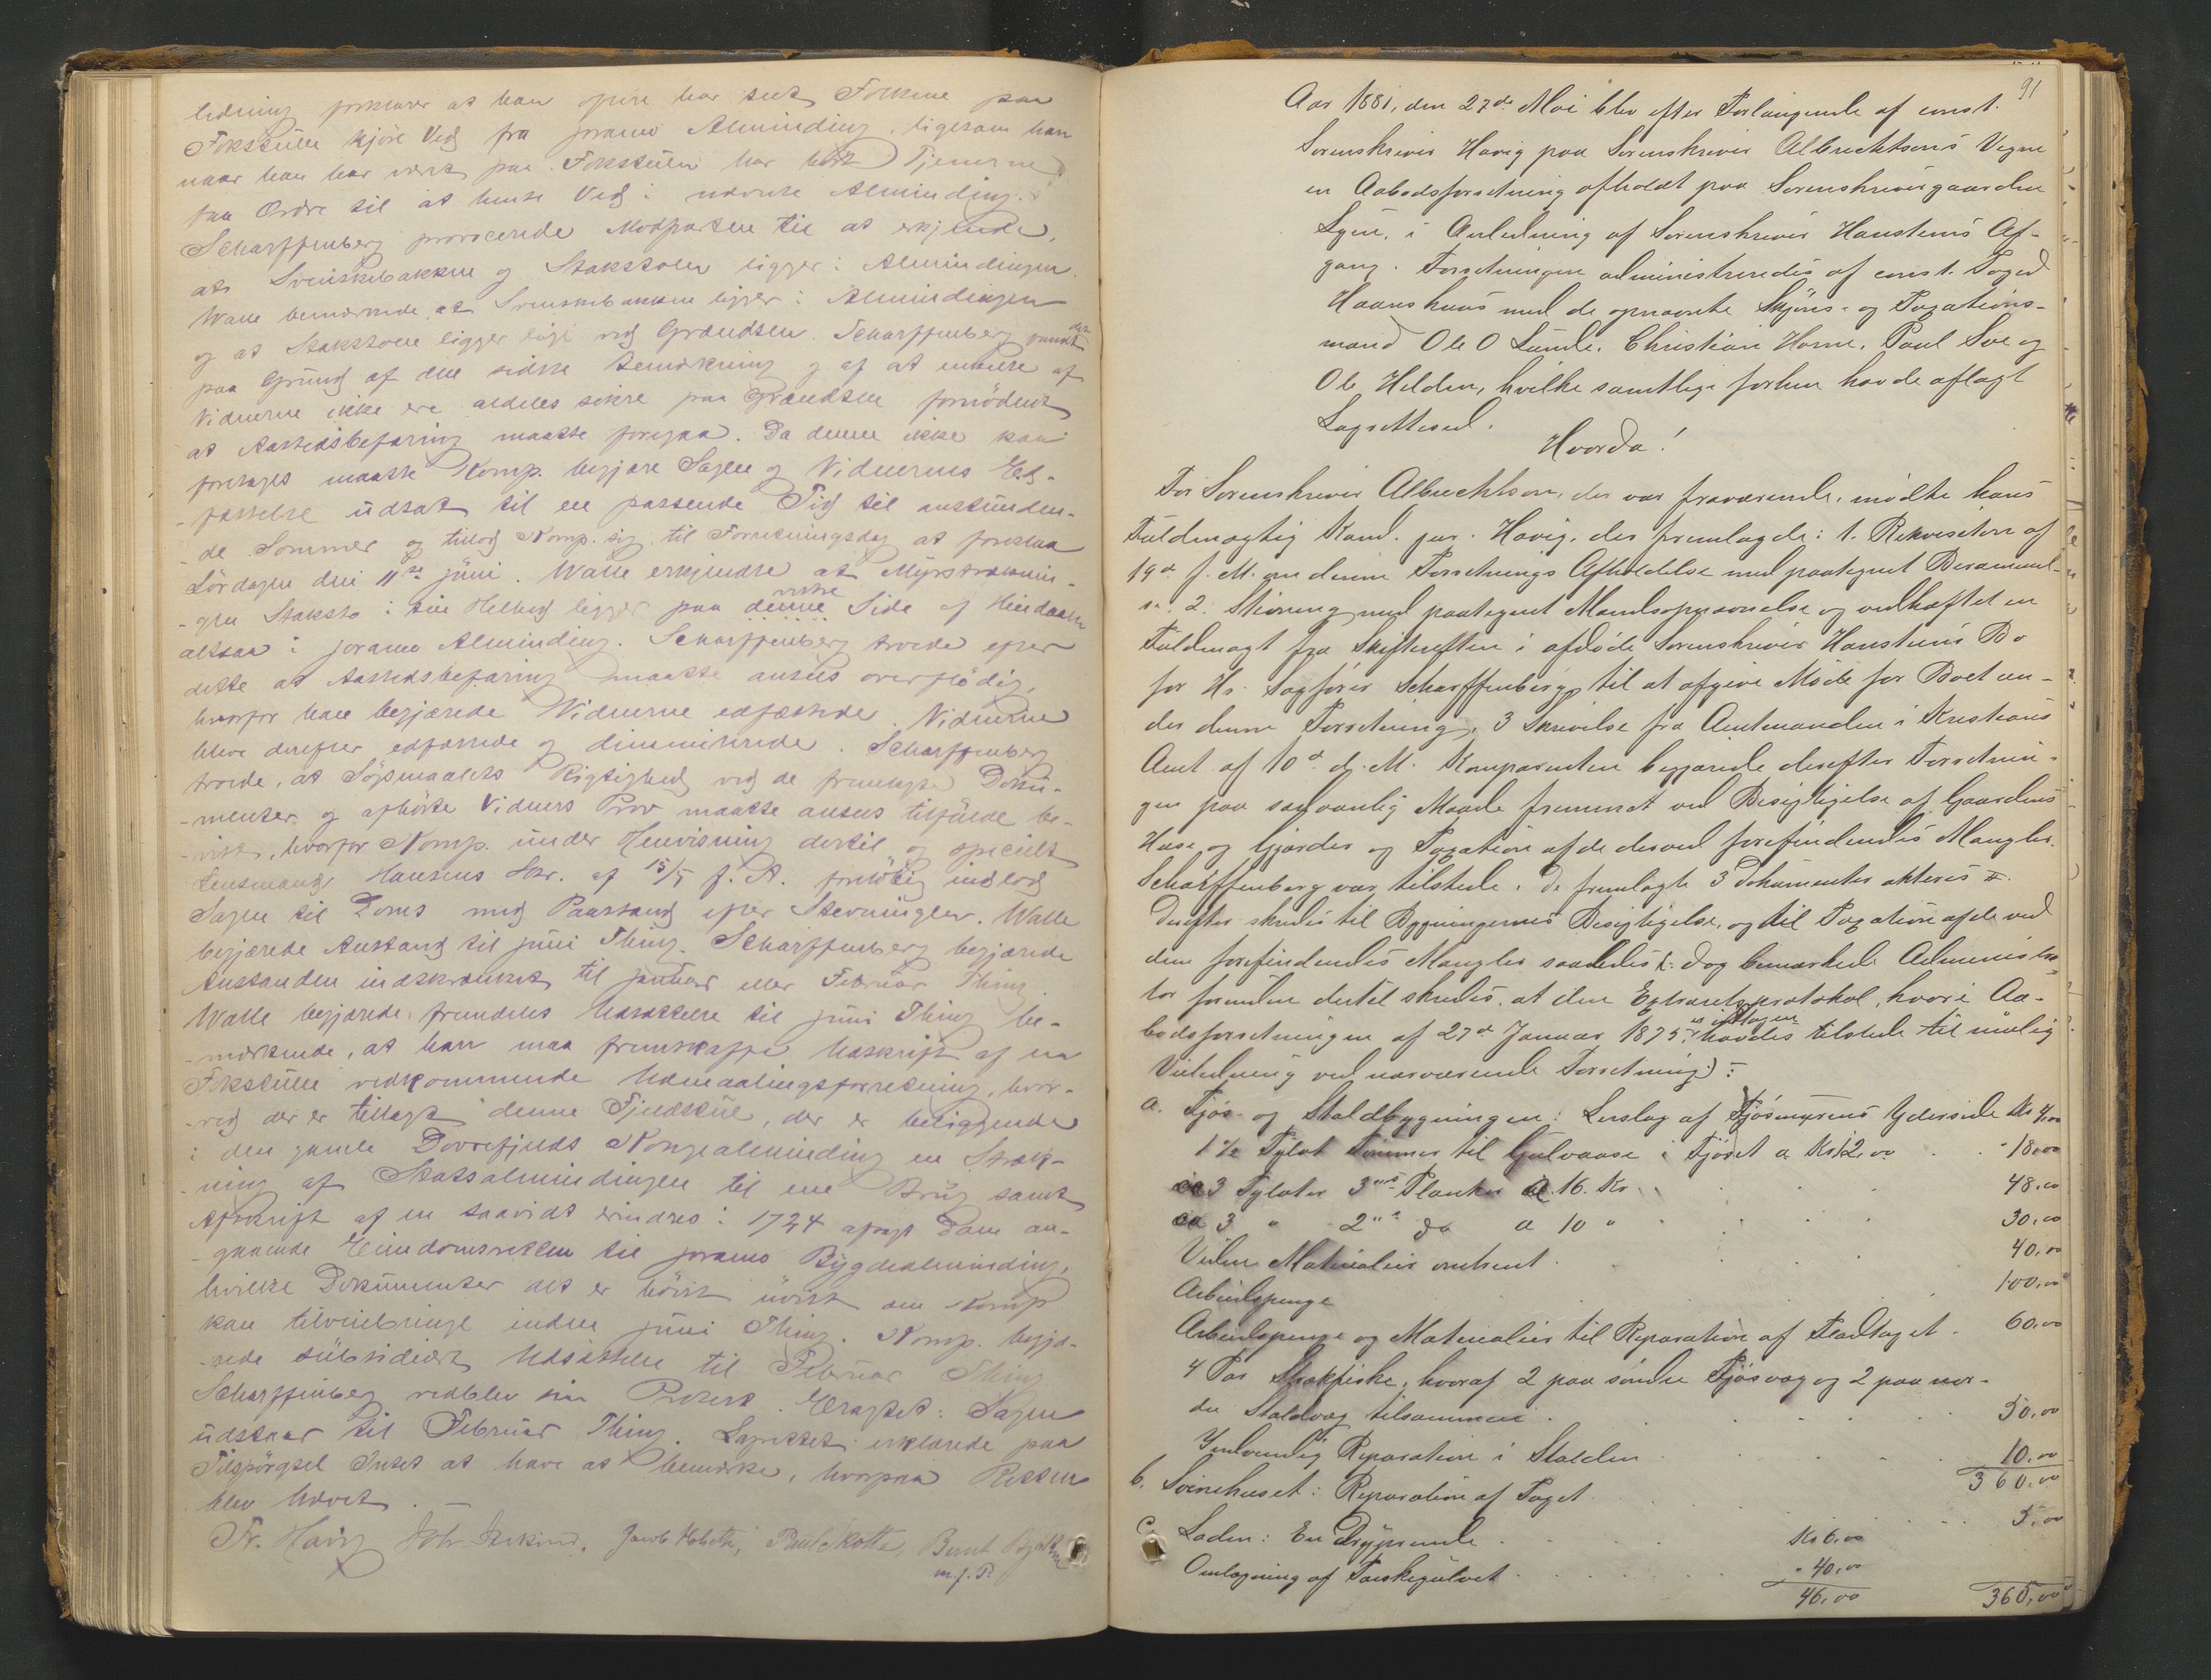 ledning forklarer at han ofte har seet Folkene paa
Fokstuen kjöre Ved fra Joramo Alminding, ligesom han
naar han har været paa Fokstuen har hört Tjenerne
faa Ordre til at hente Ved i nævnte Alminding.
Scharffenberg provocerede Modparten til at erkjende,
at Svenskebakkene og Stakstoen ligger i Almindingen.
Walle bemærkede, at Svenskebakkene ligger i Almindingen
og at Stakstoen ligger lige ved Grændsen. Scharffenberg fandt det
paa Grund af den sidste Bemærkning og af at enkelte af
Vidnerne ikke ere aldeles sikre paa Grændsen fornödent
at Aastedsbefaring maatte foregaa. Da denne ikke kan
foretages maatte Komp. begjære Sagen og Vidnernes Ed-
-fæstelse udsat til en passende Tid til anstunden-
-de Sommer og tillod Komp. sig til Forretningsdag at foreslaa
Lördagen den 11te Juni. Walle erkjendte at
-gen Staksto i sin Helhed ligger paa denne vestre Side af
altsaa i Joramo Alminding. Scharffenberg troede efter
dette at Aastedsbefaring maatte ansees overflödig,
hvorfor han begjærede Vidnerne edfæstede. Vidnerne
bleve derefter edfæstede og dimitterede. Scharffenberg
troede, at Sögsmaalets Rigtighed ved de fremlagte Doku-
-menter og afhörte Vidners Prov maatte ansees tilfulde be-
-vist, hvorfor Komp. under Henvisning dertil og specielt
Lensmand Hansens Skr. af 15/5 f. A. forelöbig indlod
Sagen til Doms med Paastand efter Stevningen. Walle
begjærede Anstand til Juni Thing. Scharffenberg begjærede
Anstanden indskrænket til Januar eller Februar Thing
Walle begjærede fremdeles Udsættelse til Juni Thing be-
-mærkende, at han maa fremskaffe Udskrift af en
Fokstuen vedkommende Udmaalingsforretning, hvor-
-ved der er tillagt denne Fjeldstue, der er beliggende
i den gamle Dovrefjelds Kongealminding en Stræk-
-ning af Statsalmindingen til eie Brug samt
Afskrift af en saavidt erindres i 1734 afsagt Dom an-
-gaaende Eiendomsretten til Joramo Bygdealminding,
hvilke Dokumenter det er höist uvist om Komp
kan tilveiebringe inden Juni Thing. Komp. begjæ-
-rede subsidiært Udsættelse til Februar Thing
Scharffenberg vedblev sin Protest. Eragtet: Sagen
udstaar til Februar Thing. Lagrettet erklærede paa
Tilspörgsel Intet at have at bemærke, hvorpaa Retten
blev hævet. —
Fr. Havig Joh. Jacob Paul Skotte, Bernt
m. f. P.
91
Aar 1881, den 27de Mai blev efter Forlangende af const.
Sorenskriver Havig paa Sorenskriver Albrechtsons Vegne
en Aabodsforretning afholdt paa Sorenskrivergaarden
Lyen, i Anledning af Sorenskriver Hansteens Af-
gang. Forretningen administreredes af const. Foged
Haanshuus med de opnævnte Skjöns- og Taxations-
mænd Ole O Lunde, Christian Horne, Paul Soe og
Ole Helden, hvilke samtlige forhen havde aflagt
Lagrettesed.
Hvorda!
For Sorenskriver Albrechtson, der var fraværende, mödte hans
Fuldmægtig Kand. jur. Havig, der fremlagde: 1. Rekvisition af
19de f. M. om denne Forretnings Afholdelse med paategnet Berammel-
se. 2. Stevning med paategnet Mændsopnævnelse og vedhæftet en
Fuldmagt fra Skifteretten i afdöde Sorenskriver Hansteens Bo
for Hr. Sagförer Scharffenberg til at afgive Möde for Boet un-
der denne Forretning, 3 Skrivelse fra Amtmanden i Kristians
Amt af 10de d. M. Komparenten begjærede derefter Forretnin-
gen paa sædvanlig Maade fremmet ved Besigtigelse af Gaardens
Huse og Gjærder og Taxation af de derved forefindendes Mangler.
Scharffenberg var tilstede. De fremlagte 3 Dokumenter akteres.
Derefter skredes til Bygningernes Besigtigelse, og til Taxation af de ved
dem forefindendes Mangler saaledes (: dog bemærkede Administra-
tor forinden dertil skredes, at den Extraretsprotokol, hvori Aa-
bodsforretningen af 27de Januar 1875 er indtagen, havdes tilstede til mulig
Veiledning ved nærværende Forretning):
a. Fjös- og Staldbygningen: Lerslag af Fjösmurens Yderside Kr 4,00
1 1/2 Tylvt Tömmer til Gulvaase i Fjöset a Kr 12,00 . . - 18,00
ca 3 Tylvter 3" Planker a 16. Kr. . . 48,00
ca 3 " 2" do a 10 " . . . . 30,00
Videre Materialier omtrent . . . 40,00
Arbeidspenge . . . 100,00
Arbeidspenge og Materialier til Reparation af Fladtaget . 60,00
4 Par Strækfiske, hvoraf 2 paa söndre Fjösvæg og 2 paa nor-
dre Staldvæg tilsammen . . . . 50,00
Indvendig Reparation i Stalden . . . 10,00
360,00
b. Svinehuset: Reparation af Taget . . . . 5,00
c. Laden: En Dryprende . . . Kr 6,00
Omlægning af Tærskegulvet . . . . " 40,00
46,00 365,00